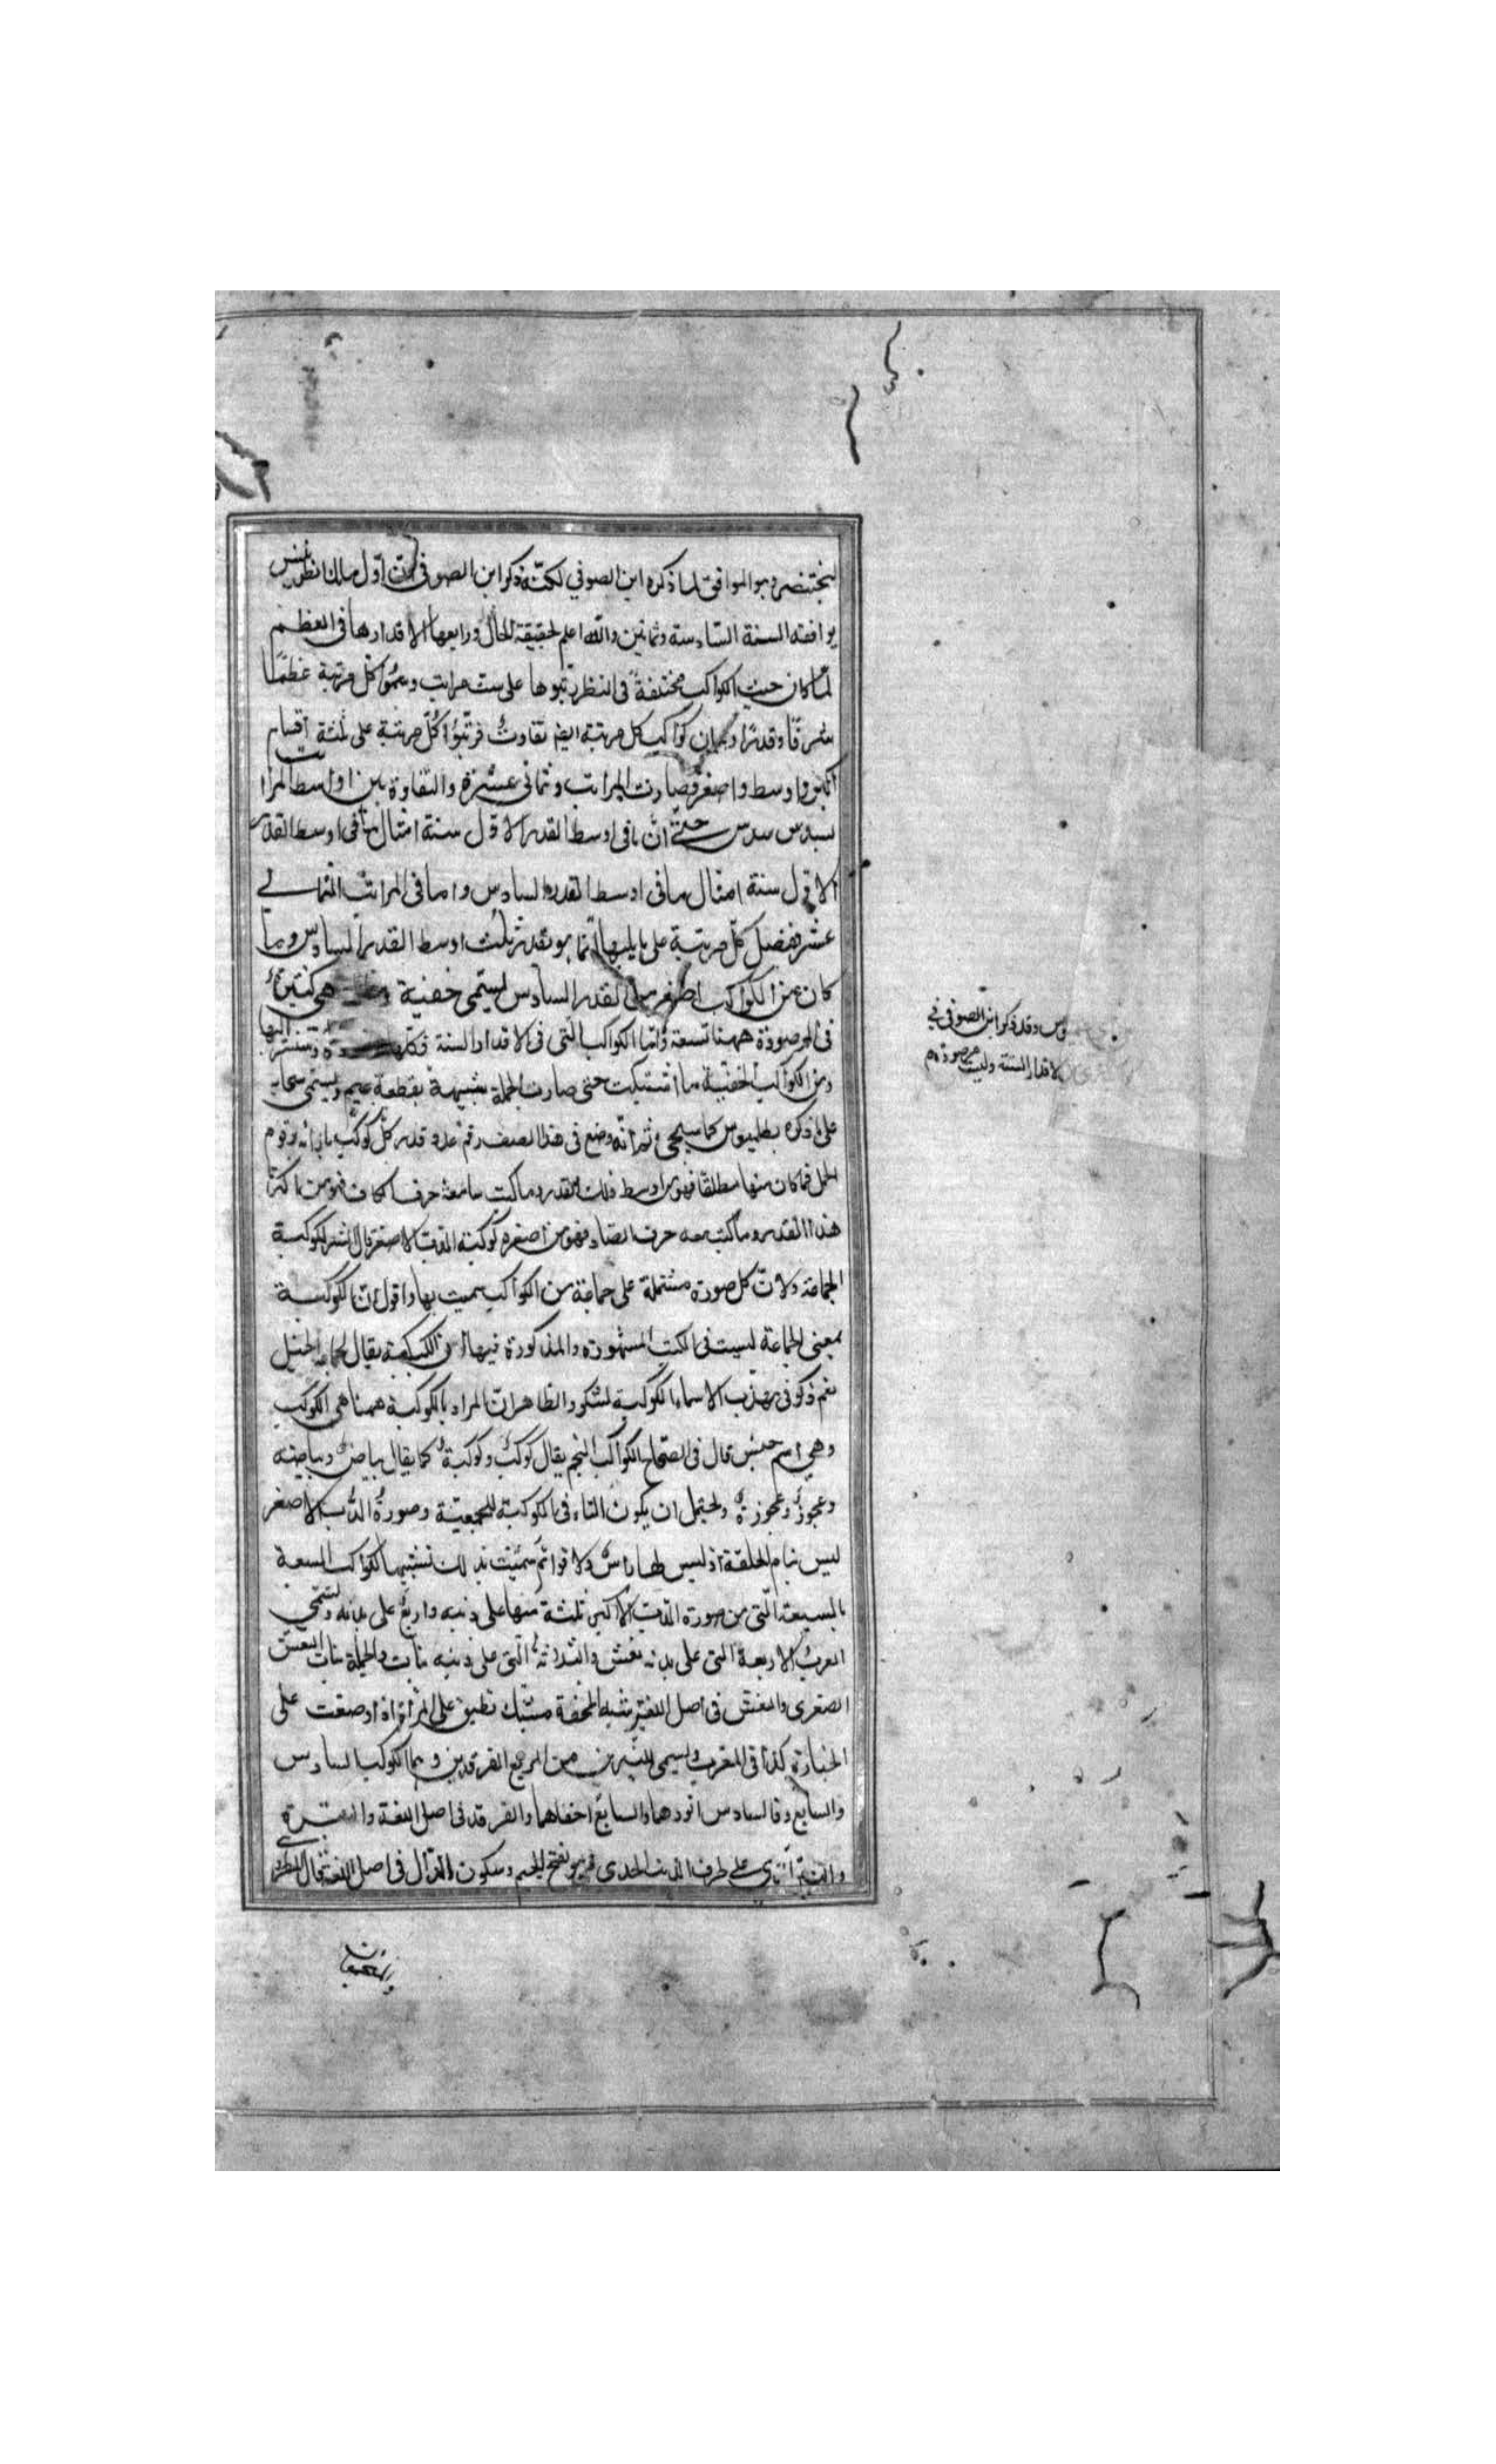 لبختنصر وهو الموافق لما ذكره ابن الصوفي لكنّه ذكر ابن الصوفي ان اوّل ملك
يوافقه السنة السادسة وثمانين والله اعلم بحقيقة الحال ورابعها الاقدارها في العظم
لمّا كان جيث الكواكب مختلفة في النظر رتبوها على ست مراتب وسمّوا كل مرتبة عظمًا
شرفًا وقدرًا وكان كواكب كل مرتبة ايضا تفاوتٌ فرتّبوا كلّ مرتبة على ثلثة اقسام
اكبر واوسط واصغر فصارت المراتب ثماني عشرة والتفاوة بين اواسط المراتب
بسدس سدس حتّى انّ ما في اوسط القدر الاوّل ستة امثال ما في اوسط القدر
الاوّل ستة امثال ما في اوسط القدر السادس واما في المراتب الثماني
عشر ففضل كلّ مرتبة على ما يليها انما هو بقدر ثلث اوسط القدر السادس وما
كان من الكواكب اصغر من القدر السادس يسمّى خفية هي كثيرة
في المرصودة ههنا تسعة وامّا الكواكب التي في الاقدار الستة فكلها
ومن الكواكب الخفية ما اشتبكت حتى صارت الجملة شبيهة بقطعة غيم ويسمّى سحابيه
على ما ذكره بطلميوس كما سيجي ثم انّه وضع في هذا الصنف رقم عدد قدر كل كوكب بازائه برقوم
الجمل فما كان منها مطلقا فهو من اوسط ذلك القدر وما كتب ما معه حرف الكاف فهو من اكثر
هذا القدر وما كتب معه حرف الصاد فهو من اصغره كوكبة الدب الاصغر قال الشر الكوكبة
الجماعة ولانّ كل صورة مشتملة على جماعة من الكواكب سميت بها واقول انّ الكوكبة
بمعنى الجماعة ليست في الكتب المشهورة والمذكورة فيها انّ الكبكبة يقال لجماعة الخيل
نعم ذكر في مهذب الاسماء الكوكبة لشكر والظاهر ان المراد بالكوكبة ههنا هي الكوكب
وهي اسم جنس قال في الصحاح الكوكب النجم يقال كوكبٌ وكوكبةٌ كما يقال بياضٌ وبياضة
وعجوزٌ وعجوزةٌ ويحتمل ان يكون التاء في الكوكبة للجمعيّة وصورة الدّب الاصغر
ليس بتام الخلقة اذ ليس لها راسٌ ولا قوائم سمّيت بذلك تشبيها لكواكب السبعة
بالسبعة الّتي من صورة الدّب الاكبر ثلثة منها على ذنبه واربع على بدنه وتسمّي
العرب الاربعة التي على بدنه نعش والثلاثة الّتي على ذنبه بنات والجملة بنات النعش
الصغرى والنعش في اصل اللغة شبه المحفة مشبّك تطبق على المرأة اذا وضعت على
الجنازة كذا في المغرب ويسمى النيّرين من المربع الفرقدين وهما الكوكب السادس
والسابع وقا السادس انورهما والسابع اخفاهما والفرقد في اصل اللغة ولد البقرة
والنيّر الذي على طرف الذنب الجدي فهو بفتح الجيم وسكون الدّال في اصل اللغة قال
وس وقد ذكر ابن الصوفي في
الاقدار الستة وليست مرصودة